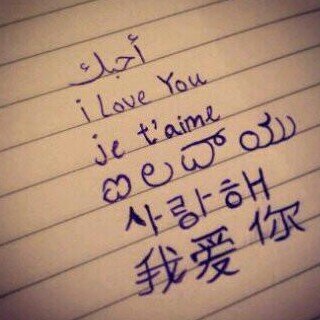 أحبك
i Love You
je t'aime
ఐ లవ్ యు
사랑해
我爱你